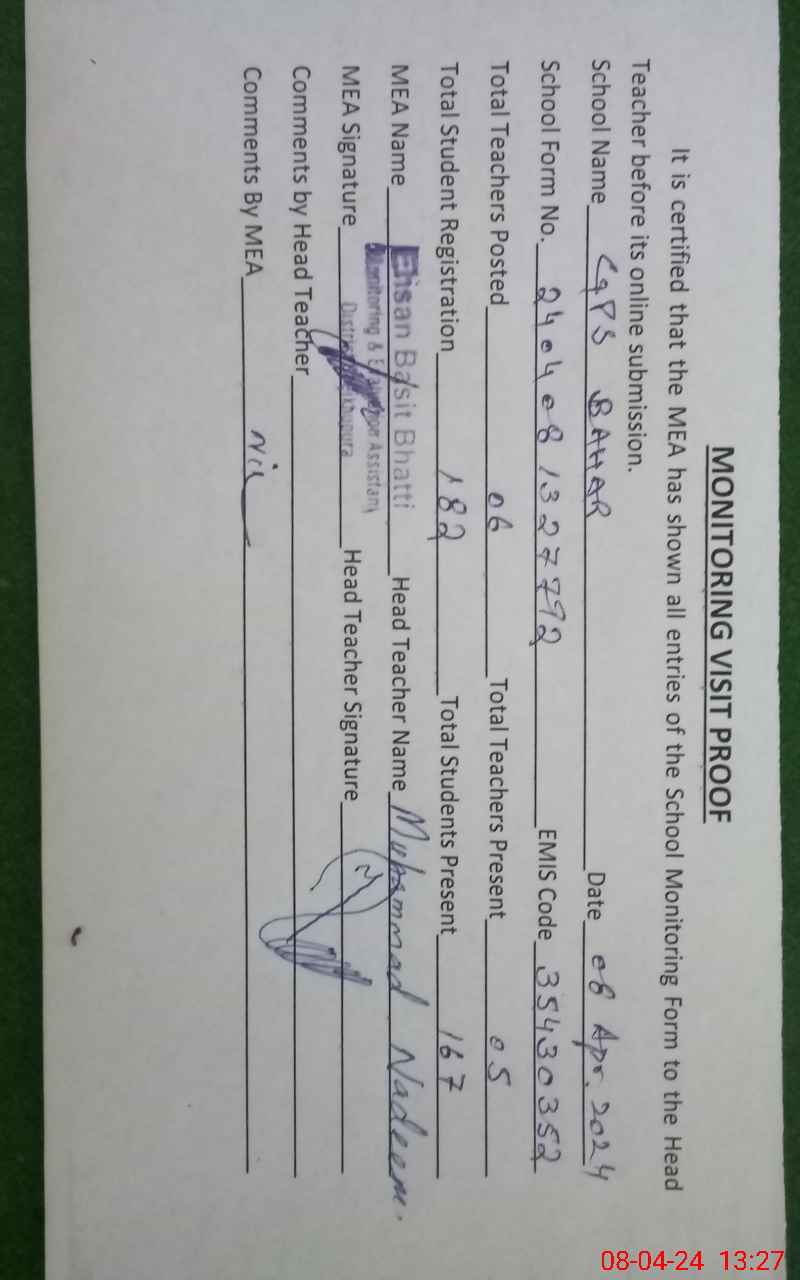 MONITORING VISIT PROOF
It is certified that the MEA has shown all entries of the School Monitoring Form to the Head
Teacher before its online submission.
School Name GPS BAHAR Date 08 Apr. 2024
School Form No. 2404081327792 EMIS Code 35430352
Total Teachers Posted 06 Total Teachers Present 05
Total Student Registration 182 Total Students Present 167
MEA Name Ehsan Basit Bhatti Head Teacher Name Muhammad Nadeem.
Monitoring & Evaluation Assistant
MEA Signature District Head Teacher Signature
Comments by Head Teacher
Comments By MEA Nil
08-04-24 13:27